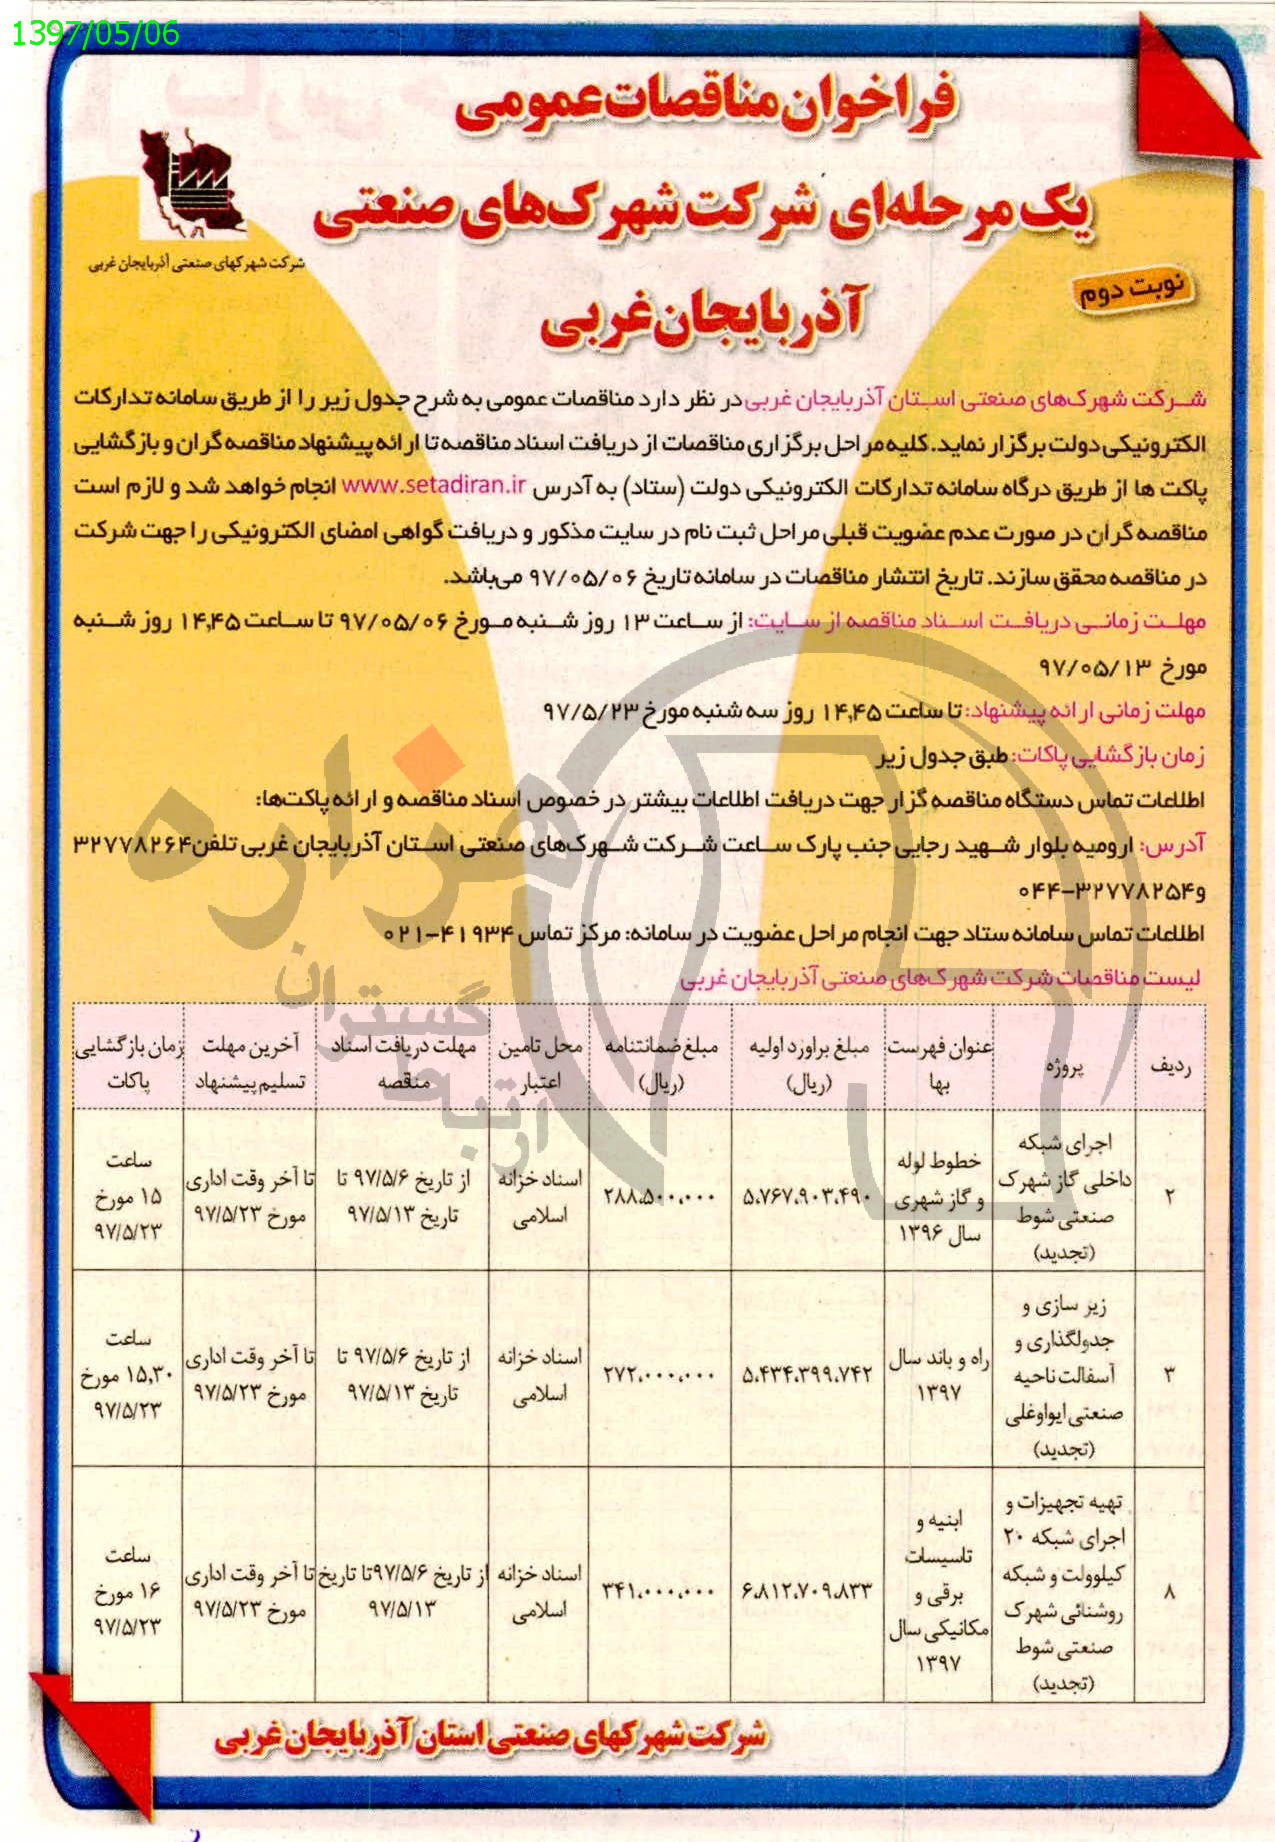 1397/05/06
فراخوان مناقصات عمومی
یک مرحله‌ای شرکت شهرک‌های صنعتی
آذربایجان غربی
شرکت شهرکهای صنعتی آذربایجان غربی
نوبت دوم
شرکت شهرک‌های صنعتی استان آذربایجان غربی در نظر دارد مناقصات عمومی به شرح جدول زیر را از طریق سامانه تدارکات
الکترونیکی دولت برگزار نماید. کلیه مراحل برگزاری مناقصات از دریافت اسناد مناقصه تا ارائه پیشنهاد مناقصه گران و بازگشایی
پاکت ها از طریق درگاه سامانه تدارکات الکترونیکی دولت (ستاد) به آدرس www.setadiran.ir انجام خواهد شد و لازم است
مناقصه گران در صورت عدم عضویت قبلی مراحل ثبت نام در سایت مذکور و دریافت گواهی امضای الکترونیکی را جهت شرکت
در مناقصه محقق سازند. تاریخ انتشار مناقصات در سامانه تاریخ ۹۷/۰۵/۰۶ می‌باشد.
مهلت زمانی دریافت اسناد مناقصه از سایت: از ساعت ۱۳ روز شنبه مورخ ۹۷/۰۵/۰۶ تا ساعت ۱۴,۴۵ روز شنبه
مورخ ۹۷/۰۵/۱۳
مهلت زمانی ارائه پیشنهاد: تا ساعت ۱۴,۴۵ روز سه شنبه مورخ ۹۷/۵/۲۳
زمان بازگشایی پاکات: طبق جدول زیر
اطلاعات تماس دستگاه مناقصه گزار جهت دریافت اطلاعات بیشتر در خصوص اسناد مناقصه و ارائه پاکت‌ها:
آدرس: ارومیه بلوار شهید رجایی جنب پارک ساعت شرکت شهرک‌های صنعتی استان آذربایجان غربی تلفن ۳۲۷۷۸۲۶۴
و ۳۲۷۷۸۲۵۴-۰۴۴
اطلاعات تماس سامانه ستاد جهت انجام مراحل عضویت در سامانه: مرکز تماس ۴۱۹۳۴-۰۲۱
لیست مناقصات شرکت شهرک‌های صنعتی آذربایجان غربی
ردیف
پروژه
عنوان فهرست
بها
مبلغ براورد اولیه
(ریال)
مبلغ ضمانتنامه
(ریال)
محل تامین
اعتبار
مهلت دریافت اسناد
منقصه
آخرین مهلت
تسلیم پیشنهاد
زمان بازگشایی
پاکات
۲
اجرای شبکه
داخلی گاز شهرک
صنعتی شوط
(تجدید)
خطوط لوله
و گاز شهری
سال ۱۳۹۶
۵،۷۶۷،۹۰۳،۴۹۰
۲۸۸،۵۰۰،۰۰۰
اسناد خزانه
اسلامی
از تاریخ ۹۷/۵/۶ تا
تاریخ ۹۷/۵/۱۳
تا آخر وقت اداری
مورخ ۹۷/۵/۲۳
ساعت
۱۵ مورخ
۹۷/۵/۲۳
۳
زیر سازی و
جدولگذاری و
آسفالت ناحیه
صنعتی ایواوغلی
(تجدید)
راه و باند سال
۱۳۹۷
۵،۴۳۴،۳۹۹،۷۴۲
۲۷۲،۰۰۰،۰۰۰
اسناد خزانه
اسلامی
از تاریخ ۹۷/۵/۶ تا
تاریخ ۹۷/۵/۱۳
تا آخر وقت اداری
مورخ ۹۷/۵/۲۳
ساعت
۱۵,۳۰ مورخ
۹۷/۵/۲۳
۸
تهیه تجهیزات و
اجرای شبکه ۲۰
کیلوولت و شبکه
روشنائی شهرک
صنعتی شوط
(تجدید)
ابنیه و
تاسیسات
برقی و
مکانیکی سال
۱۳۹۷
۶،۸۱۲،۷۰۹،۸۳۳
۳۴۱،۰۰۰،۰۰۰
اسناد خزانه
اسلامی
از تاریخ ۹۷/۵/۶ تا تاریخ
۹۷/۵/۱۳
تا آخر وقت اداری
مورخ ۹۷/۵/۲۳
ساعت
۱۶ مورخ
۹۷/۵/۲۳
شرکت شهرکهای صنعتی استان آذربایجان غربی
هزاره
گستران
ارتباط